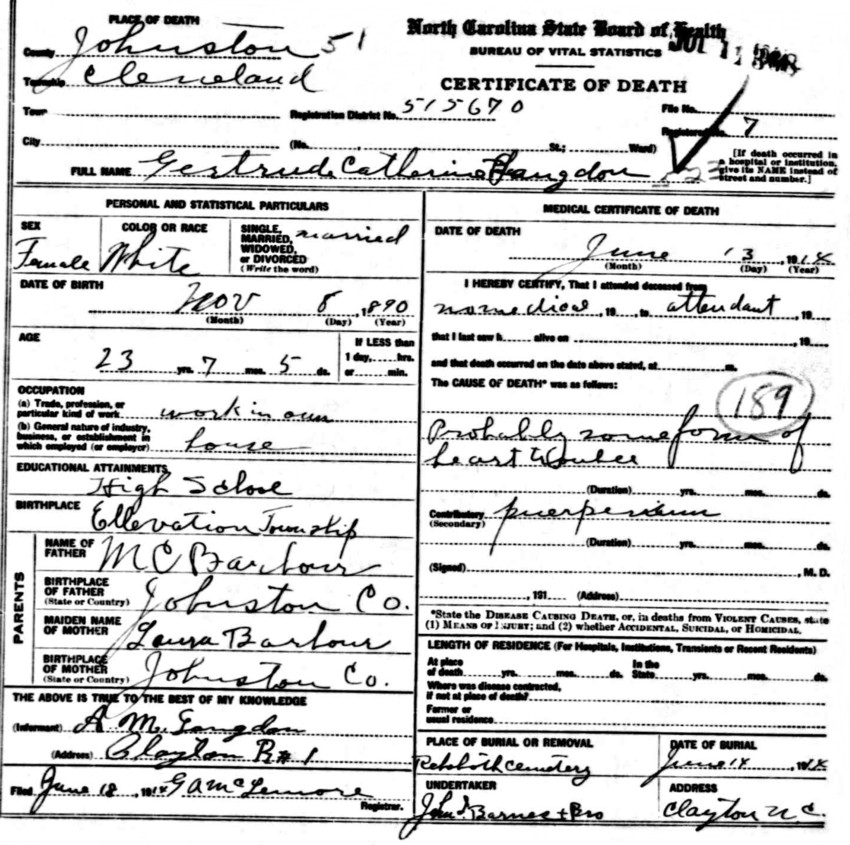 PLACE OF DEATH
County Johnston 51
Township Cleveland
Town
City
North Carolina State Board of Health
BUREAU OF VITAL STATISTICS
JUL 11
CERTIFICATE OF DEATH
Registration District No. 515670
File No.
Registered No. 7
(No. , St.; Ward)
[If death occurred in a hospital or institution, give its NAME instead of street and number.]
FULL NAME Gertrude Catherine Langdon
PERSONAL AND STATISTICAL PARTICULARS
SEX
Female
COLOR OR RACE
White
SINGLE, MARRIED, WIDOWED, or DIVORCED
(Write the word)
married
DATE OF BIRTH
Nov 8, 1890
(Month) (Day) (Year)
AGE
23 yrs. 7 mos. 5 ds.
If LESS than 1 day, hrs. or min.
OCCUPATION
(a) Trade, profession, or particular kind of work work in own
(b) General nature of industry, business, or establishment in which employed (or employer) house
EDUCATIONAL ATTAINMENTS
High School
BIRTHPLACE
Ellevation Township
PARENTS
NAME OF FATHER
M C Barbour
BIRTHPLACE OF FATHER
(State or Country)
Johnston Co.
MAIDEN NAME OF MOTHER
Laura Barbour
BIRTHPLACE OF MOTHER
(State or Country)
Johnston Co.
THE ABOVE IS TRUE TO THE BEST OF MY KNOWLEDGE
(Informant) A. M. Langdon
(Address) Clayton R#1
Filed June 18, 1914 G A McLemore
Registrar.
MEDICAL CERTIFICATE OF DEATH
DATE OF DEATH
June 13, 1914
(Month) (Day) (Year)
I HEREBY CERTIFY, That I attended deceased from
no medical, 19 , to attendant, 19
that I last saw h alive on , 19
and that death occurred on the date above stated, at m.
The CAUSE OF DEATH* was as follows:
189
Probably some form of
heart trouble
(Duration) yrs. mos. ds.
Contributory puerperium
(Secondary)
(Duration) yrs. mos. ds.
(Signed) , M. D.
, 191 (Address)
*State the DISEASE CAUSING DEATH, or, in deaths from VIOLENT CAUSES, state
(1) MEANS OF INJURY; and (2) whether ACCIDENTAL, SUICIDAL, OR HOMICIDAL.
LENGTH OF RESIDENCE (For Hospitals, Institutions, Transients or Recent Residents)
At place of death yrs. mos. ds. In the State yrs. mos. ds.
Where was disease contracted, if not at place of death?
Former or usual residence
PLACE OF BURIAL OR REMOVAL
Rehobith cemetery
DATE OF BURIAL
June 14, 1914
UNDERTAKER
John I Barnes + Bro
ADDRESS
Clayton N.C.